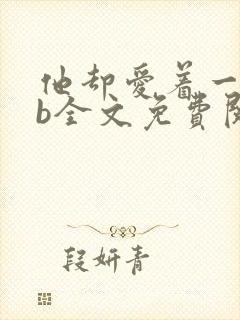 他却爱着一
b全文免费阅
段妍青